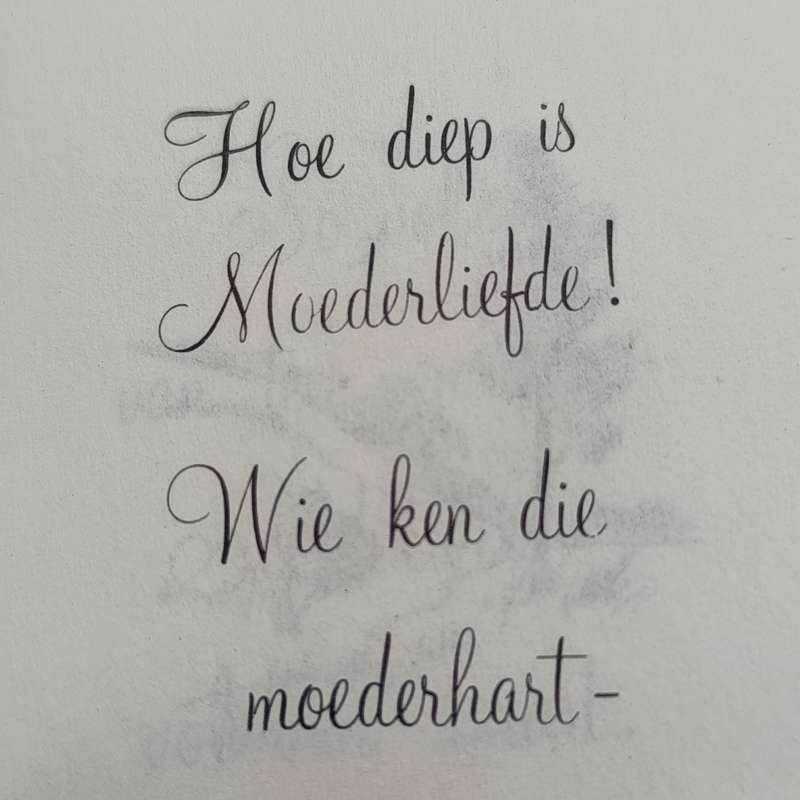 Hoe diep is
Moederliefde!
Wie ken die
moederhart-